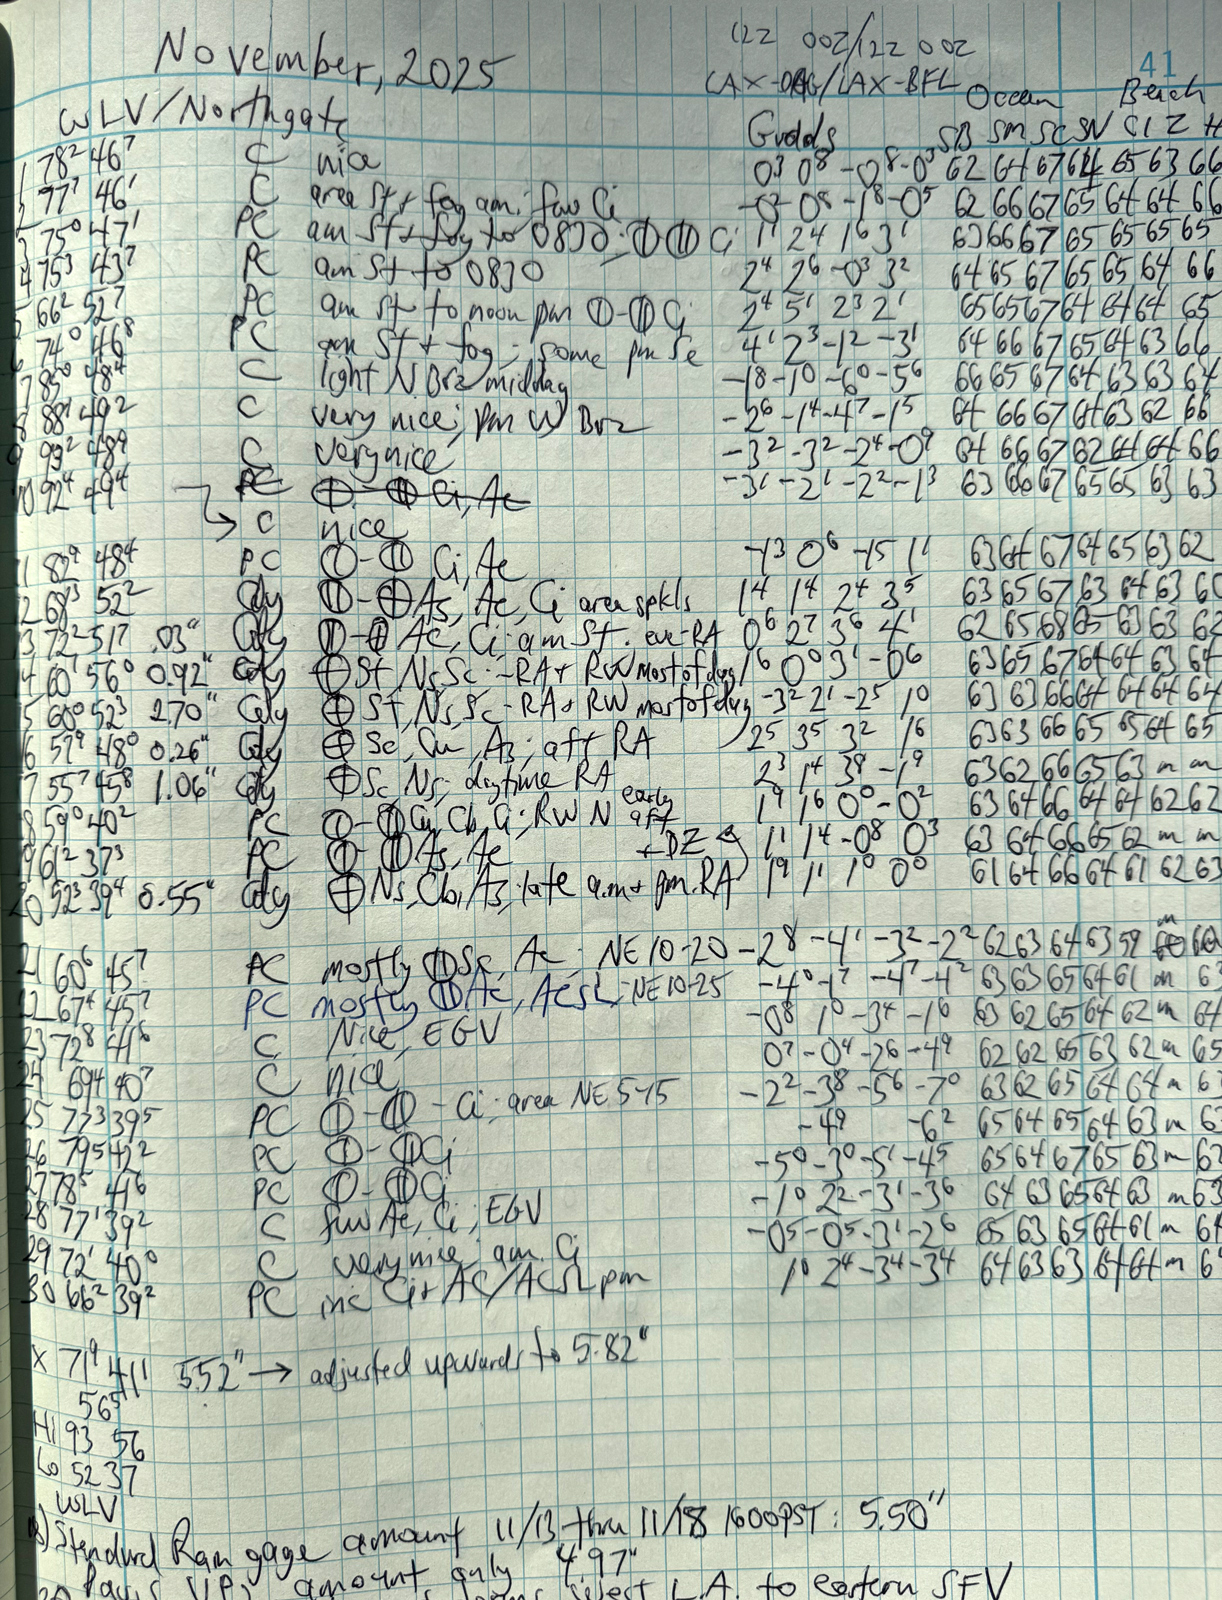 November, 2025
12Z 00Z/12Z 00Z
41
LAX-DAG/LAX-BFL
Ocean Beach
WLV/Northgate
Grads SB SM SC SN CI Z H
1 78² 46⁷ C nice 0³ 0⁸ -0⁸ -0³ 62 64 67 64 65 63 66
2 77¹ 46¹ C area St + fog am; few Ci -0² 0⁸ -1⁸ -0⁵ 62 66 67 65 64 64 66
3 75⁰ 47¹ PC am St + fog to 0830; ⦶ Ci 1¹ 2⁴ 1⁶ 3¹ 63 66 67 65 65 65 65
4 75³ 43⁷ PC am St to 0830 2⁴ 2⁶ -0³ 3² 64 65 67 65 65 64 66
5 66² 52⁷ PC am St to noon pm ⦶-⦶ Ci 2⁴ 5¹ 2³ 2¹ 65 65 67 64 64 64 65
6 74⁰ 46⁸ PC am St + fog; some pm Sc 4¹ 2³ -1² -3¹ 64 66 67 65 64 63 66
7 85⁰ 48⁴ C light N Brz midday -1⁸ -1⁰ -6⁰ -5⁶ 66 65 67 64 63 63 64
8 88¹ 49² C very nice; pm W Brz -2⁶ -1⁴ -4⁷ -1⁵ 64 66 67 64 63 62 66
9 93² 48⁹ C very nice -3² -3² -2⁴ -0⁹ 64 66 67 62 64 64 66
10 92⁴ 49⁴ PC ⦶-⦶ Ci, Ac -3¹ -2¹ -2² -1³ 63 66 67 65 65 63 63
→ C nice
11 82⁹ 48⁴ PC ⦶-⦶ Ci, Ac -1³ 0⁶ -1⁵ 1¹ 63 64 67 64 65 63 62
12 68³ 52² Cdy ⦶-⊕ As, Ac, Ci area spkls 1⁴ 1⁴ 2⁴ 3⁵ 63 65 67 63 64 63 60
13 72² 51⁷ .03" Cdy ⦶-⊕ Ac, Ci; am St. eve -RA 0⁶ 2⁷ 3⁶ 4¹ 62 65 68 65 63 63 62
14 60¹ 56⁰ 0.92" Cdy ⊕ St Ns Sc; -RA + RW most of day 1⁶ 0⁰ 3¹ -0⁶ 63 65 67 64 64 63 64
15 60⁰ 52³ 2.70" Cdy ⊕ St, Ns, Sc -RA + RW most of day -3² 2¹ -2⁵ 1⁰ 63 63 66 64 64 64 64
16 57⁹ 48⁰ 0.26" Cdy ⊕ Sc, Cu, As; aft RA 2⁵ 3⁵ 3² 1⁶ 63 63 66 65 65 64 65
17 55⁷ 45⁸ 1.06" Cdy ⊕ Sc Ns; daytime RA 2³ 1⁴ 3⁹ -1⁹ 63 62 66 65 63 m m
18 59⁰ 40² PC ⦶-⦶ Cu, Cb, Ci; RW N early aft 1⁹ 1⁶ 0⁰ -0² 63 64 66 64 64 62 62
19 61² 37³ PC ⦶-⦶ As, Ac +DZ 1¹ 1⁴ -0⁸ 0³ 63 64 66 65 62 m m
20 52³ 39⁴ 0.55" Cdy ⊕ Ns, Cb, As; late a.m + pm. RA 1⁹ 1¹ 1⁰ 0⁰ 61 64 66 64 61 62 63
21 60⁶ 45⁷ PC mostly ⦶ Sc, Ac; NE 10-20 -2⁸ -4¹ -3² -2² 62 63 64 63 59 m 60
22 67⁴ 45⁷ PC mostly ⦶ Ac, ACSL; NE 10-25 -4⁰ -1⁷ -4⁷ -4² 63 63 65 64 61 m 63
23 72⁸ 41⁶ C Nice, EGV -0⁸ 1⁰ -3⁴ -1⁶ 63 62 65 64 62 m 64
24 69⁴ 40⁷ C nice 0⁷ -0⁴ -2⁶ -4⁹ 62 62 65 63 62 m 65
25 77³ 39⁵ PC ⦶-⦶ - Ci; area NE 5-15 -2² -3⁸ -5⁶ -7⁰ 63 62 65 64 64 m 63
26 79⁵ 42² PC ⦶-⦶ Ci -4⁹ -6² 65 64 65 64 63 m 63
27 78⁵ 41⁶ PC ⦶-⦶ Ci -5⁰ -3⁰ -5¹ -4⁵ 65 64 67 65 63 m 62
28 77¹ 39² C few Ac, Ci; EGV -1⁰ 2² -3¹ -3⁶ 64 63 65 64 63 m 63
29 72¹ 40⁰ C very nice; am. Ci -0⁵ -0⁵ -3¹ -2⁶ 65 63 65 64 61 m 64
30 66² 39² PC inc Ci + AC/ACSL pm 1⁰ 2⁴ -3⁴ -3⁴ 64 63 63 64 64 m
X 71⁹ 41¹ 5.52" → adjusted upwards to 5.82"
56⁵
HI 93 56
Lo 52 37
WLV
Standard Rain gage amount 11/13 thru 11/18 1600PST: 5.50"
amount only 4.97"
select L.A. to eastern SFV